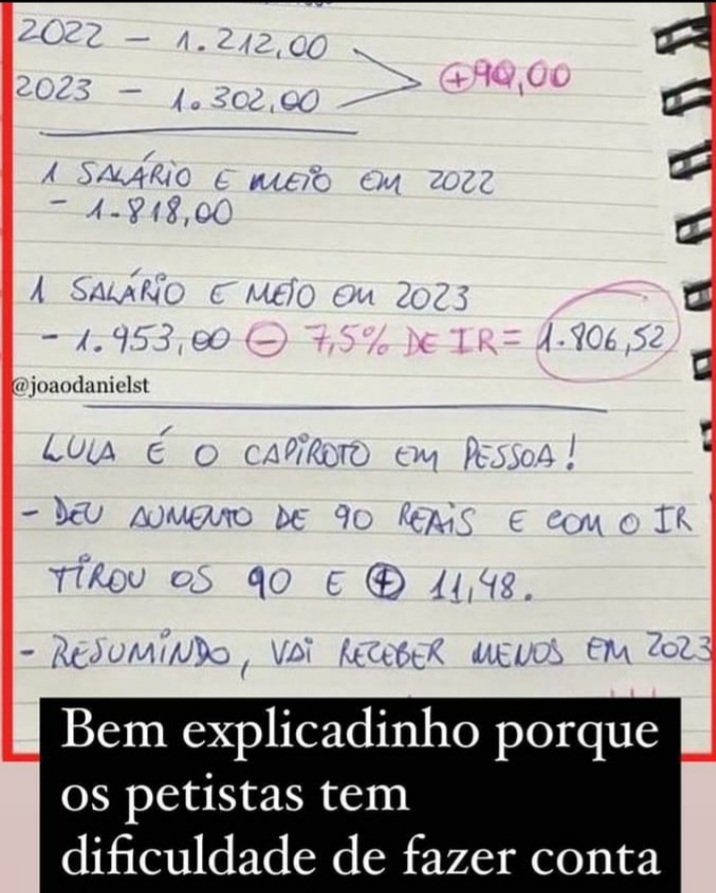 2022 - 1.212,00
⊕90,00
2023 - 1.302,00
1 SALÁRIO E MEIO EM 2022
- 1.818,00
1 SALÁRIO E MEIO EM 2023
- 1.953,00 ⊖ 7,5% DE IR = 1.806,52
@joaodanielst
LULA É O CAPIROTO EM PESSOA!
- DEU AUMENTO DE 90 REAIS E COM O IR
TIROU OS 90 E ⊕ 11,48.
- RESUMINDO, VAI RECEBER MENOS EM 2023
Bem explicadinho porque
os petistas tem
dificuldade de fazer conta